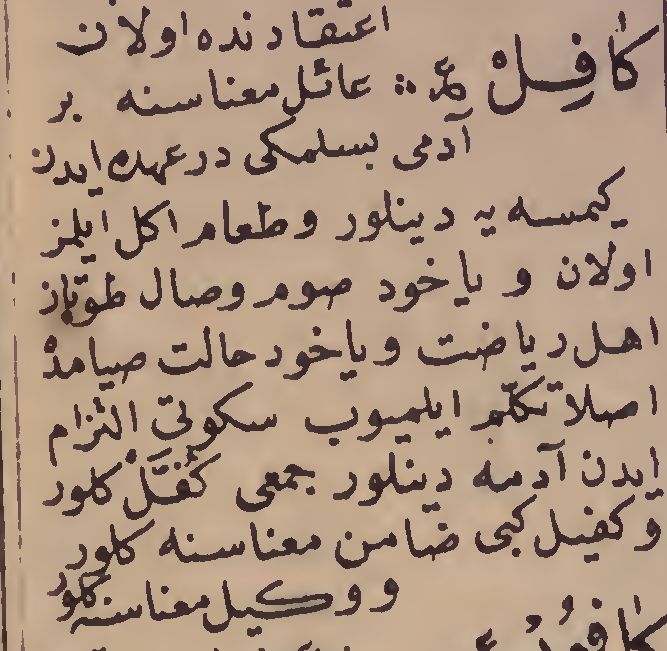 اعتقادنده اولان
كَافِلْ ع عائل معناسنه بر
آدمى بسلمكى درعهده ايدن
كيمسه يه دينلور وطعام اكل ايلمز
اولان و ياخود صوم وصال طوتان
اهل رياضت وياخود حالت صيامده
اصلا تكلّم ايلميوب سكوتى التزام
ايدن آدمه دينلور جمعى كُفَّلْ كلور
و كفيل كبى ضامن معناسنه كلور
و وكيل معناسنه كلور
كافور